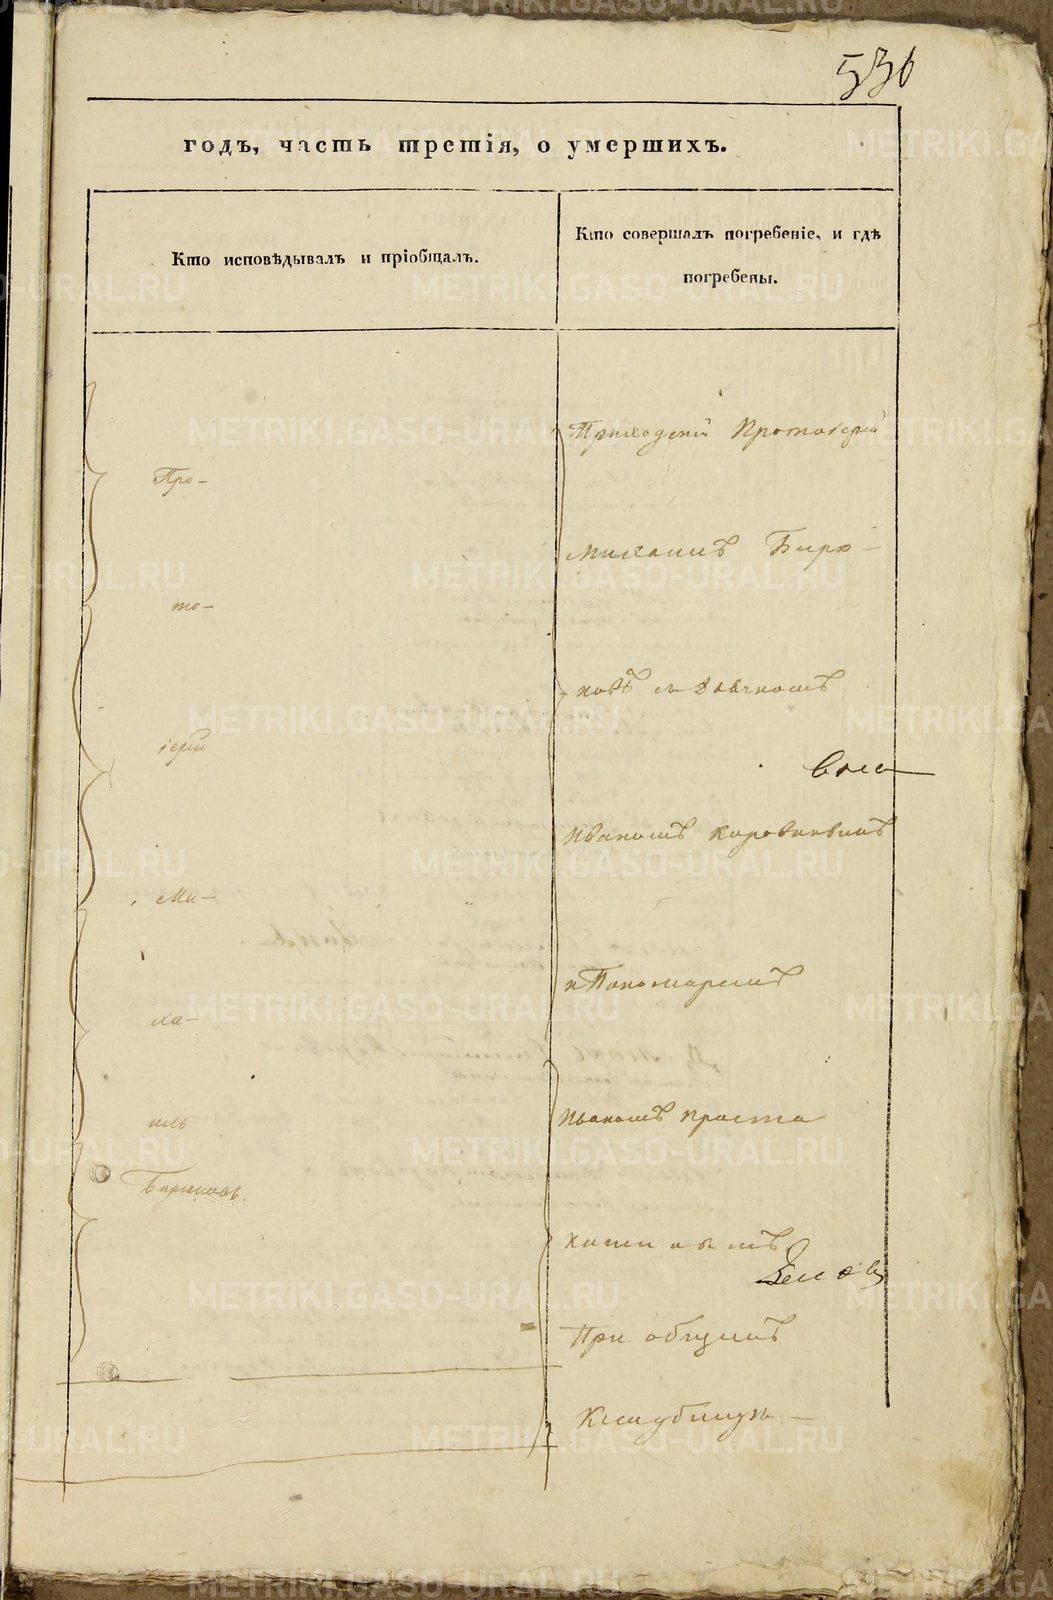 536
годъ, часть третія, о умершихъ.
Кто исповѣдывалъ и пріобщалъ.
Кто совершалъ погребеніе, и гдѣ
погребены.
Про-
то-
іерей
Ми-
ха-
илъ
Бирюковъ.
Приходскій Протоіерей
Михаилъ Бирю-
ковъ съ Дьячкомъ
Иваномъ
и Пономаремъ
Иваномъ Проста
При общемъ
Кладбищѣ
METRIKI.GASO-URAL.RU